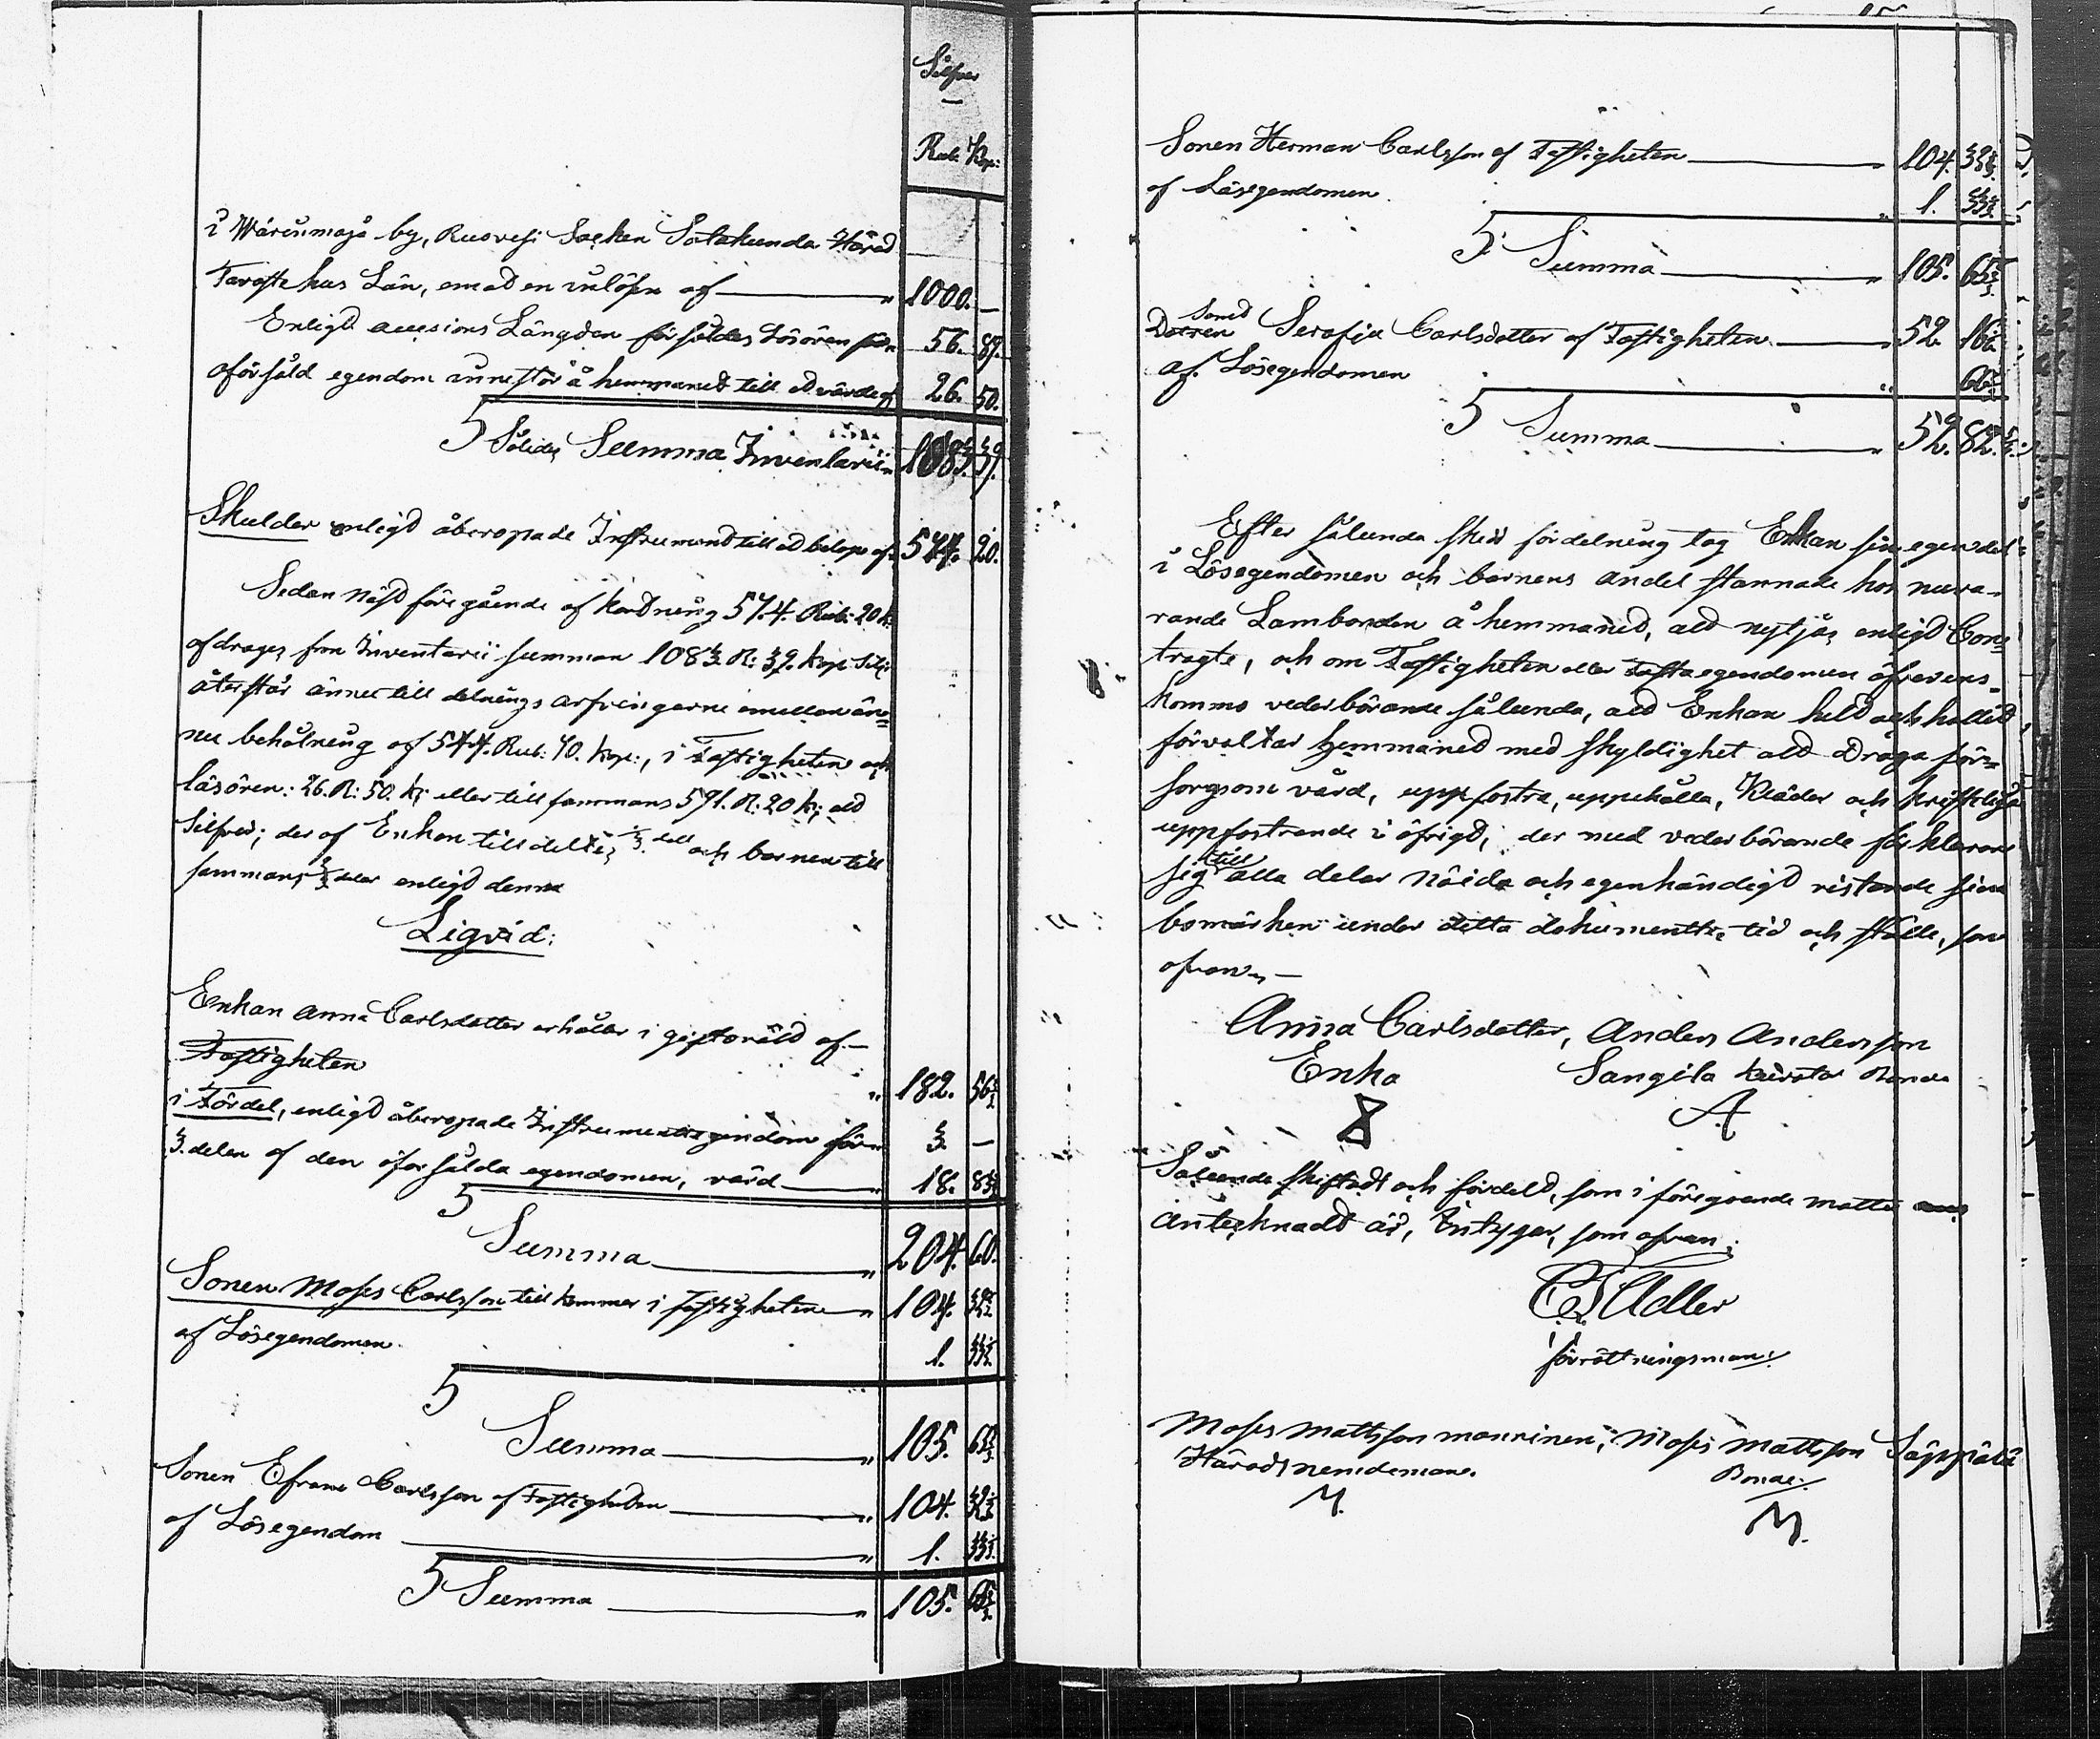 Silfver
Rub. Kop:
i Wäreinmaja by, Ruovesi Socken Satakunda Härad
Tavastehus Län, emad en inlösen af 1000. —
Enligd auctions Längden försåldes Lösören för 56. 89.
oförsåld egendom innestår å hemmaned till ed värde af 26. 50.
S Summa Inventarii 1083. 39.
Skulder enligd åberopade Instrumend till ed belopp af 574. 20.
Sedan näst föregående afkordning 574. Rub: 20 k.
afdrages fron Inventarii summan 1083. R: 39. kop. Silf:
återstår ännu till delnings arfvingarne emellan än=
nu behålning af 544. Rub: 70. kop:, i Fastigheten och
lösören: 26. R: 50. k; eller till sammans 591. R: 20 k; ald
Silfver; der af Enkan tilldeltes 1/3 del och barnen till
sammans 2/3 delar enligd denna
Liqvid:
Enkan Anna Carlsdotter erhåller i giftoräld af
Fastigheten 182. 56
i Fördel, enligd åberopade Instruments egendom för 3. —
3. delen af den oförsålda egendomen, värd 18. 83
S
Summa 204. 60.
Sonen Moses Carlsson till kommer i fastigheten 104. 32
af Lösegendomen 1. 33
S
Summa 105. 65
Sonen Efraim Carlsson af Fastigheten 104. 32
af Lösegendom 1. 33
S Summa 105. 65
Sonen Herman Carlsson af Fastigheten 104. 32
af Lösegendomen 1. 33
S Summa 105. 65
Dotren Serafia Carlsdotter af Fastigheten 52. 16
af Lösegendomen 66
S Summa 52. 82
Efter sålunda sked fördelning tog Enkan sin egen del
i Lösegendomen och barnens andel stannade hos nuva-
rande Lambonden å hemmaned, ald nytjas enligd Con=
tragte, och om Fastigheten eller fasta egendomen öfverens=
kommo vederbörande sålunda, ald Enkan held och hålled
förvaltar hemmaned med skyldighet ald draga för=
sorgsom vård, uppfostra, uppehålla, kläder och kristeliga
uppfostrande i öfrigd, der med vederbörande förklarar
sig till alla delar nöida och egenhändigd ristande sina
bomärken under detta dokumentt, tid och ställe, som
ofvan. —
Anna Carlsdotter, Anders Andersson
Enka Sangila Bonde
A
Sålunda skiftadt och fördeld, som i föregående måtto
antecknadt är, Intygar, som ofvan:
Adler
förrättningsman:
Moses Mattsson Manninen; Moses Mattsson Säppälä
Häradsnemdeman. Bonde:
M. M.